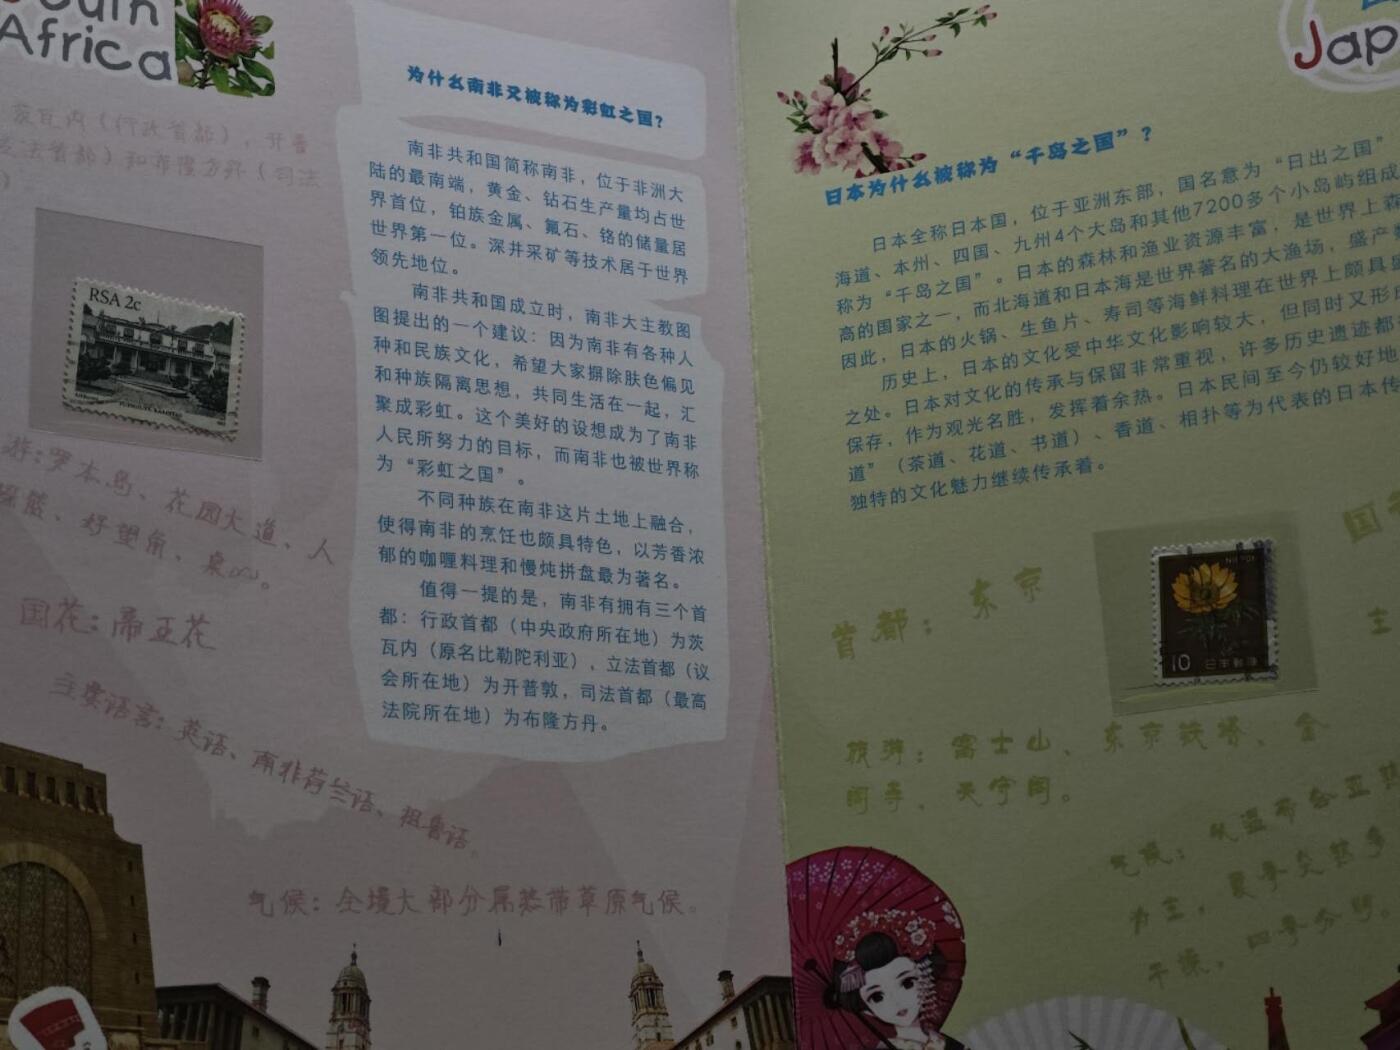 South
Africa
茨瓦内（行政首都），开普
立法首都）和布隆方丹（司法
）
RSA 2c
游：罗本岛、花园大道、人
好望角、桌
国花：帝王花
主要语言：英语、南非荷兰语、祖鲁语。
气候：全境大部分属热带草原气候。
为什么南非又被称为彩虹之国？
南非共和国简称南非，位于非洲大
陆的最南端，黄金、钻石生产量均占世
界首位，铂族金属、氟石、铬的储量居
世界第一位。深井采矿等技术居于世界
领先地位。
南非共和国成立时，南非大主教图
图提出的一个建议：因为南非有各种人
种和民族文化，希望大家摒除肤色偏见
和种族隔离思想，共同生活在一起，汇
聚成彩虹。这个美好的设想成为了南非
人民所努力的目标，而南非也被世界称
为“彩虹之国”。
不同种族在南非这片土地上融合，
使得南非的烹饪也颇具特色，以芳香浓
郁的咖喱料理和慢炖拼盘最为著名。
值得一提的是，南非有拥有三个首
都：行政首都（中央政府所在地）为茨
瓦内（原名比勒陀利亚），立法首都（议
会所在地）为开普敦，司法首都（最高
法院所在地）为布隆方丹。
Jap
日本为什么被称为“千岛之国”？
日本全称日本国，位于亚洲东部，国名意为“日出之国”
海道、本州、四国、九州4个大岛和其他7200多个小岛屿组成
称为“千岛之国”。日本的森林和渔业资源丰富，是世界上森
高的国家之一，而北海道和日本海是世界著名的大渔场，盛产数
因此，日本的火锅、生鱼片、寿司等海鲜料理在世界上颇具盛
历史上，日本的文化受中华文化影响较大，但同时又形成
之处。日本对文化的传承与保留非常重视，许多历史遗迹都
保存，作为观光名胜，发挥着余热。日本民间至今仍较好地
道”（茶道、花道、书道）、香道、相扑等为代表的日本传
独特的文化魅力继续传承着。
国
首都：东京
主
10 日本郵便
旅游：富士山、东京铁塔、金
阁寺、天守阁。
气候：以温带
为主，夏季炎热多
干燥，四季分明。